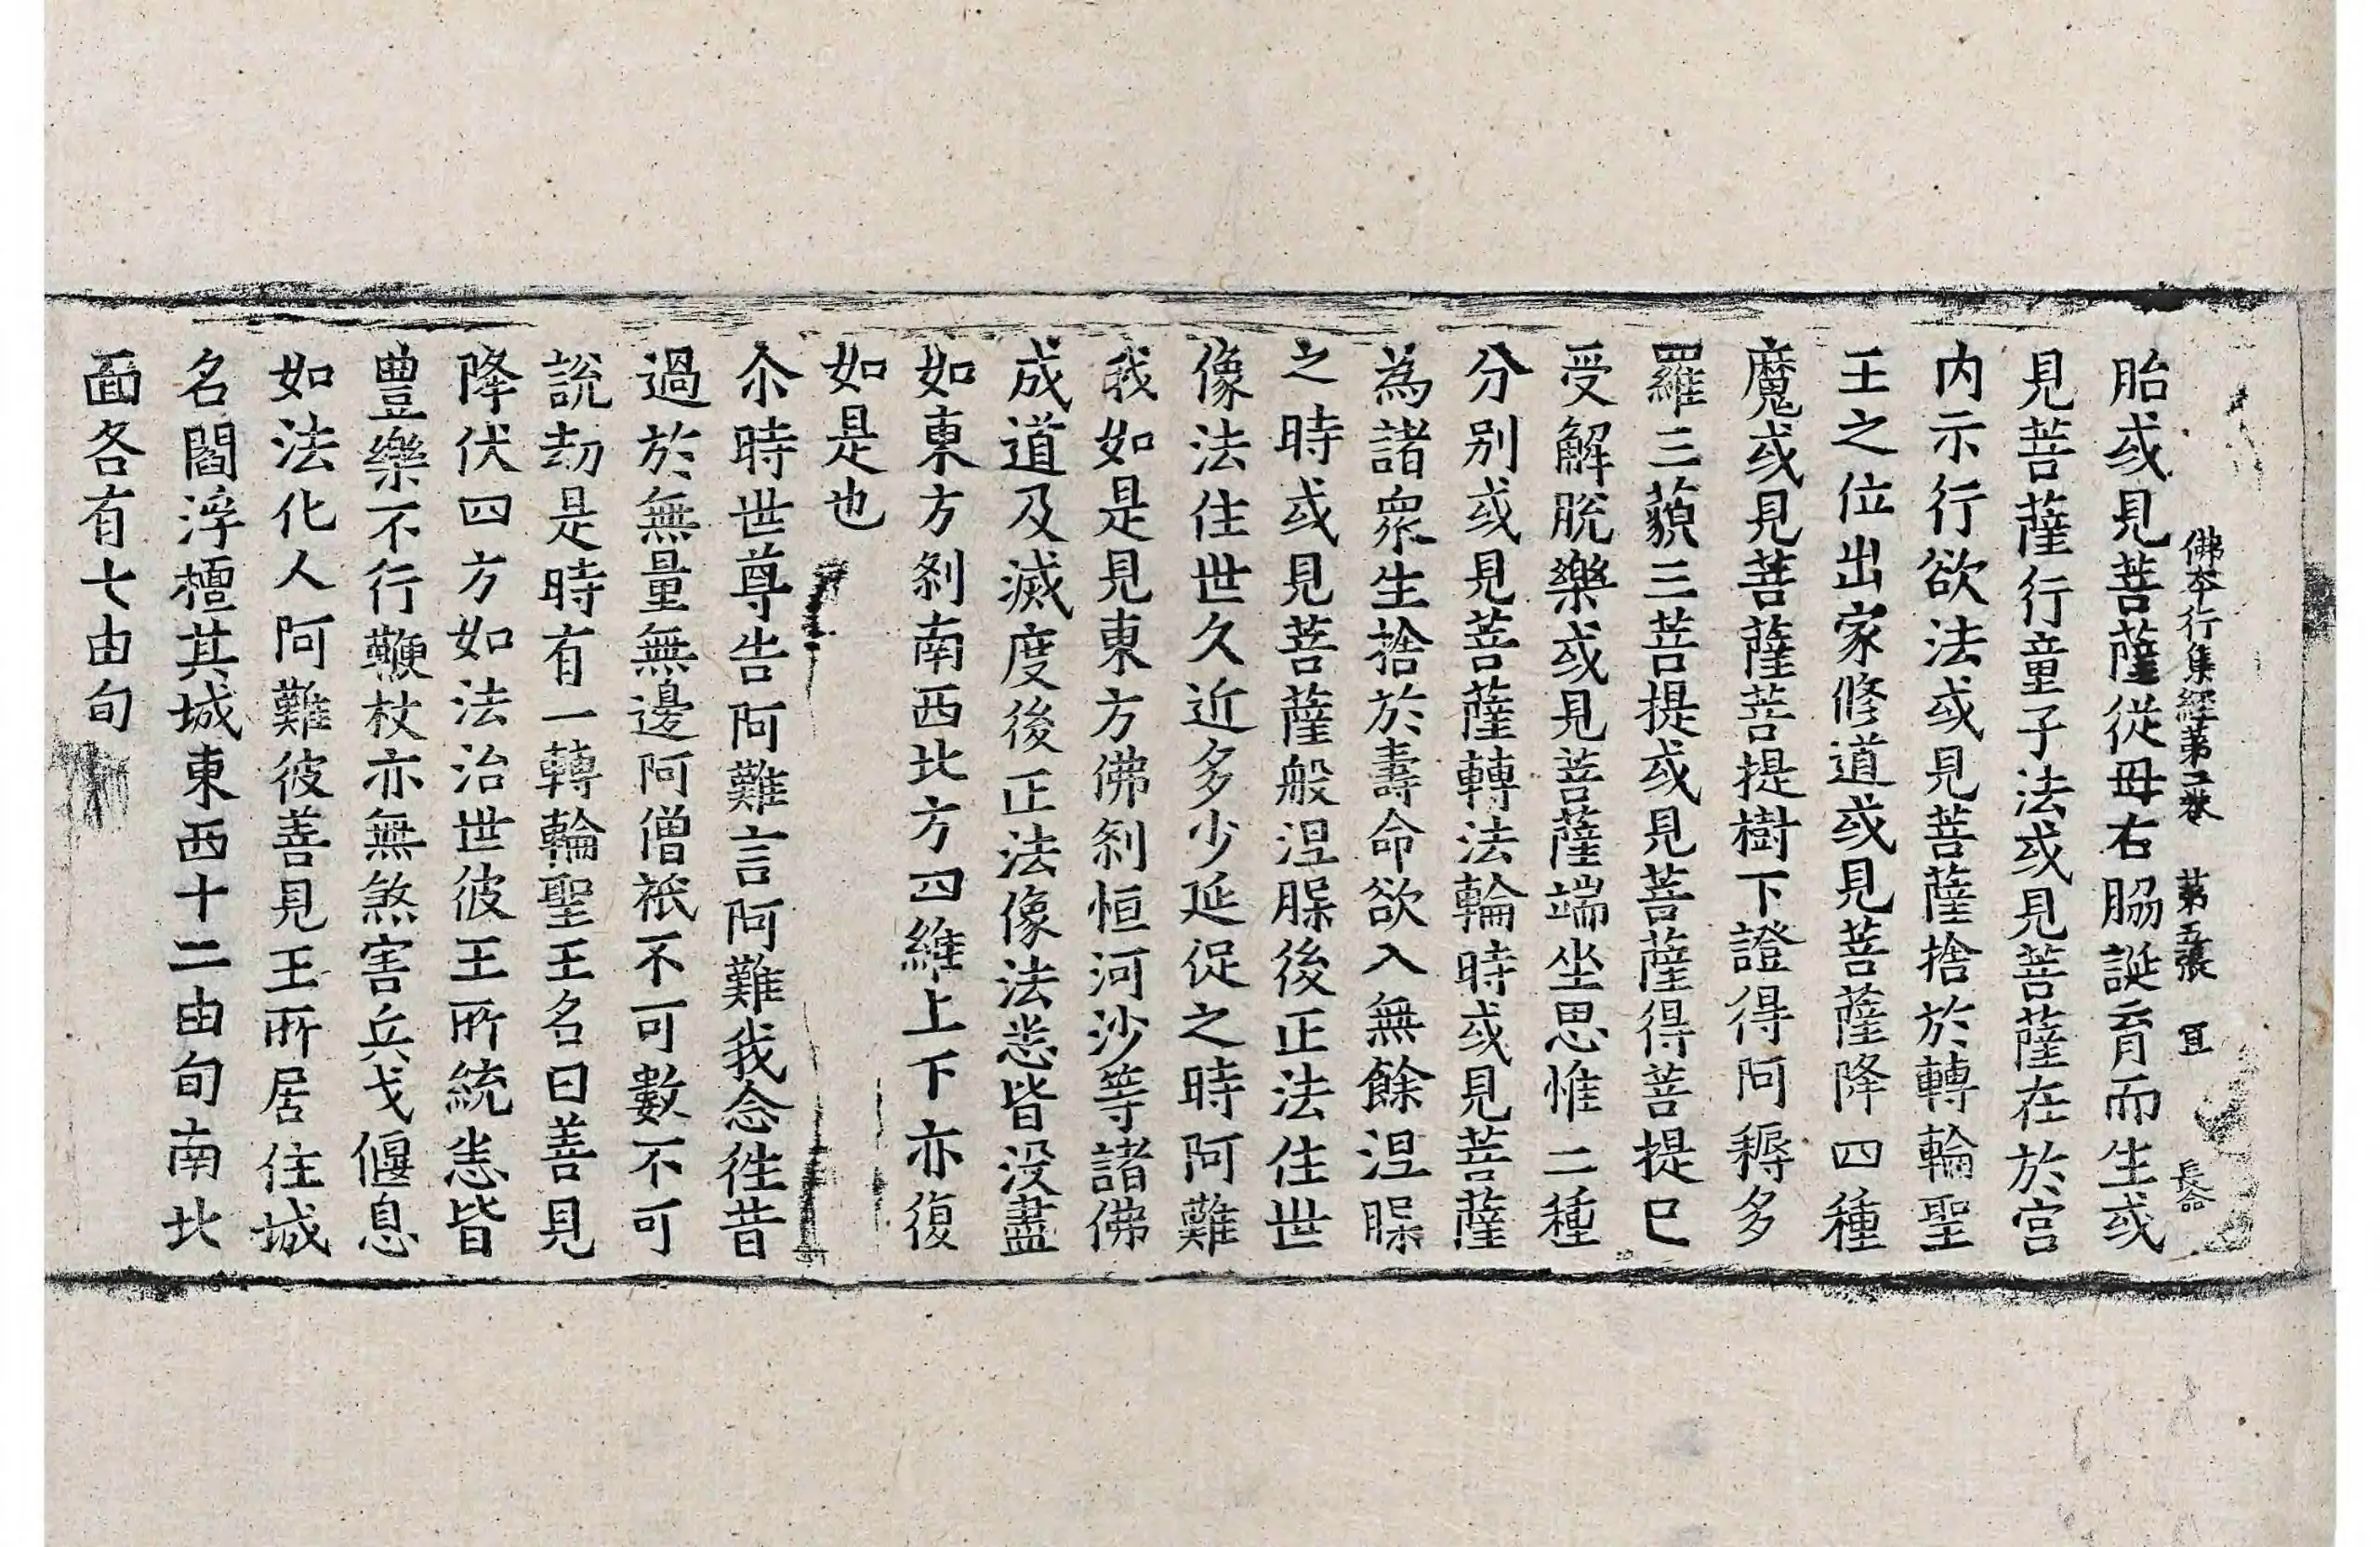 佛本行集經第二卷 第五張 宜 長命
胎或見菩薩從母右脇誕育而生或
見菩薩行童子法或見菩薩在於宮
内示行欲法或見菩薩捨於轉輪聖
王之位出家修道或見菩薩降四種
魔或見菩薩菩提樹下證得阿耨多
羅三藐三菩提或見菩薩得菩提已
受解脫樂或見菩薩端坐思惟二種
分別或見菩薩轉法輪時或見菩薩
為諸衆生捨於壽命欲入無餘涅槃
之時或見菩薩般涅槃後正法住世
像法住世久近多少延促之時阿難
我如是見東方佛刹恒河沙等諸佛
成道及滅度後正法像法悉皆没盡
如東方刹南西北方四維上下亦復
如是也
尒時世尊告阿難言阿難我念往昔
過於無量無邊阿僧祇不可數不可
說劫是時有一轉輪聖王名曰善見
降伏四方如法治世彼王所統悉皆
豊樂不行鞭杖亦無煞害兵戈偃息
如法化人阿難彼善見王所居住城
名閻浮檀其城東西十二由旬南北
面各有七由旬